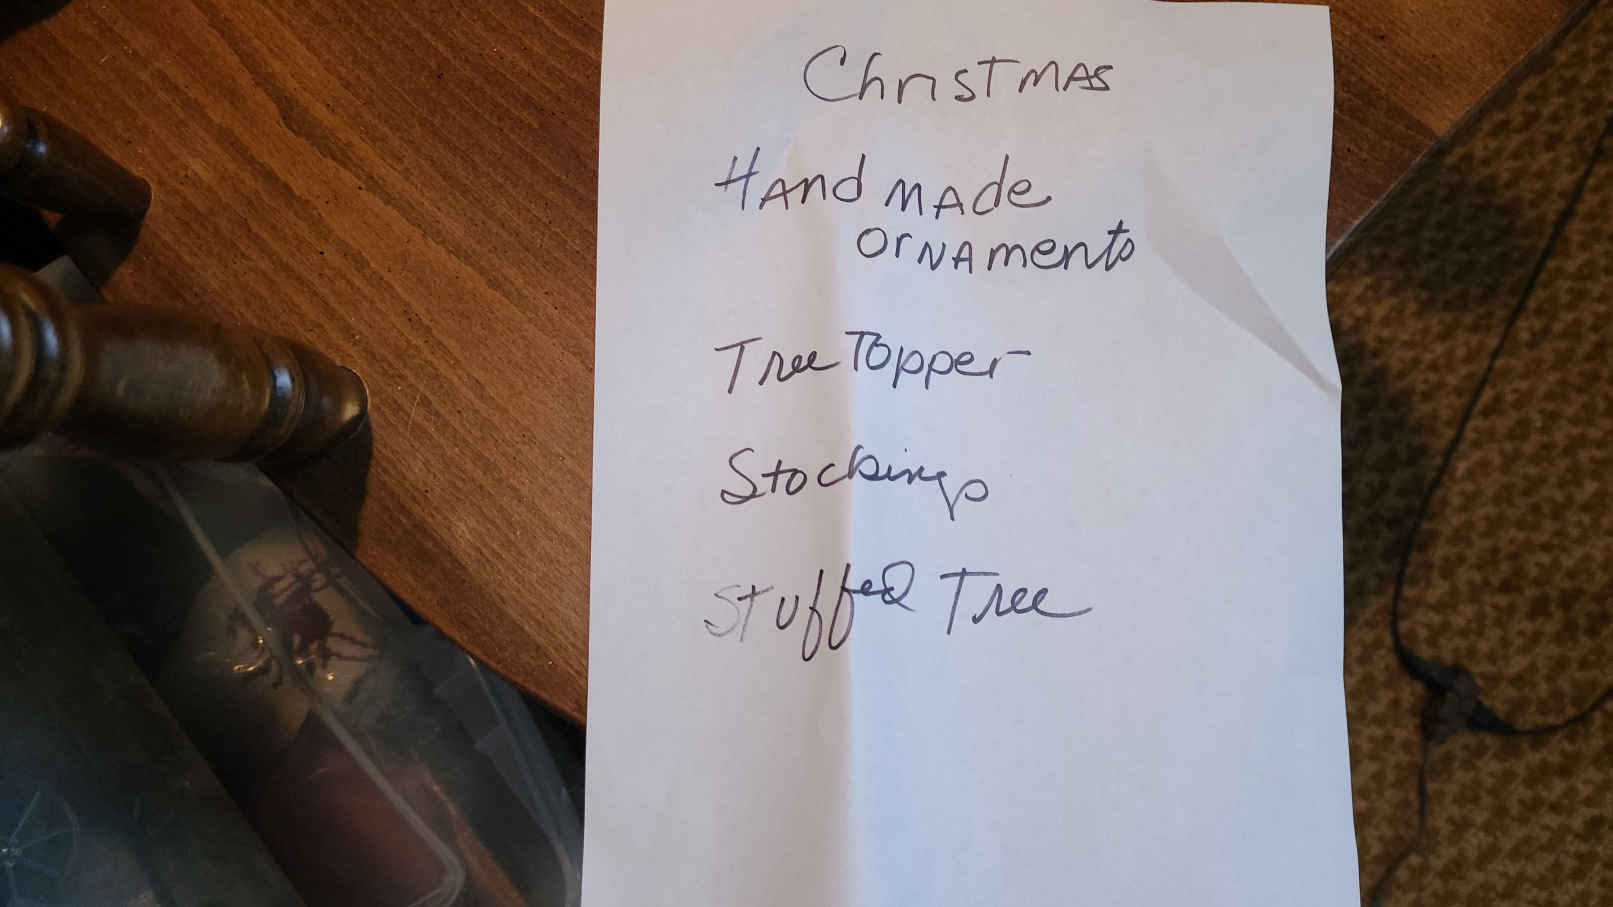 Christmas
Hand made
ornaments
Tree Topper
Stockings
Stuffed Tree